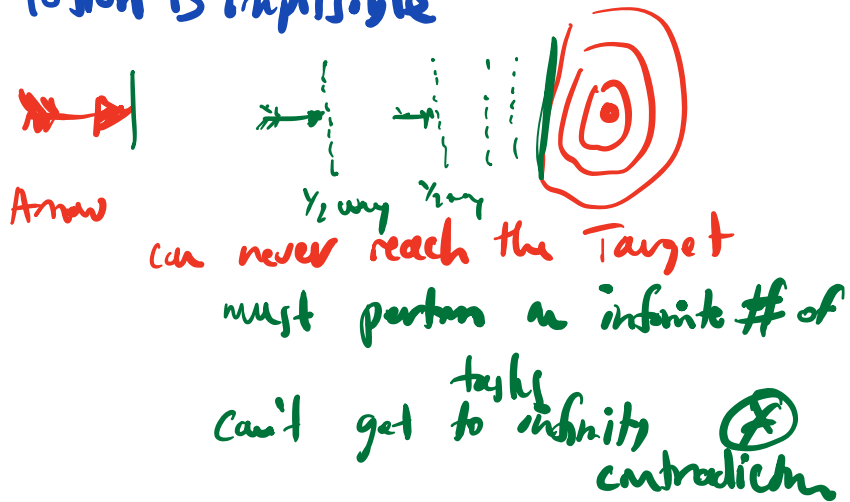 is impossible
Arrow
1/2 way 1/2 way
can never reach the Target
must perform an infinite # of
tasks
can't get to infinity
contradiction